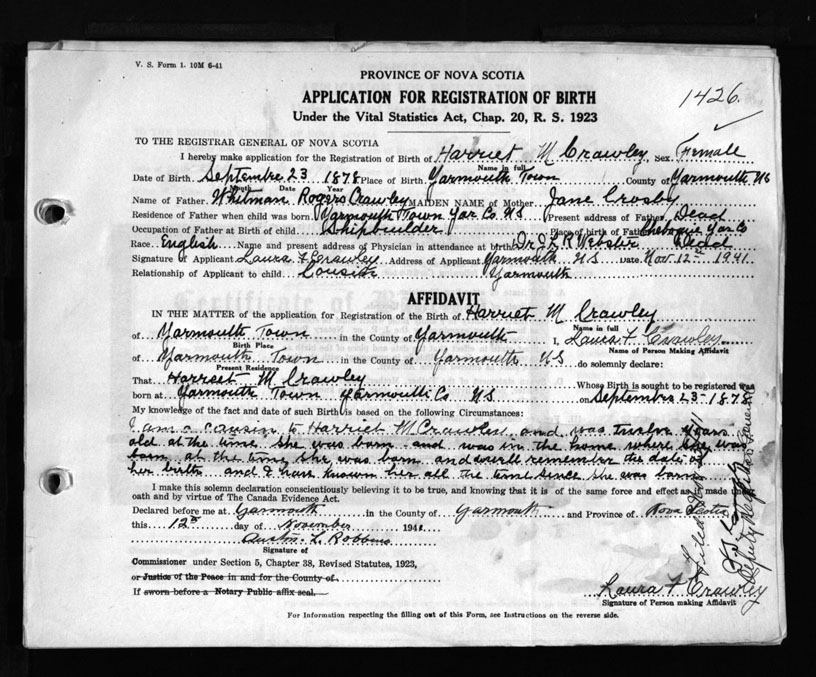 V. S. Form 1. 10M 6-41
PROVINCE OF NOVA SCOTIA
APPLICATION FOR REGISTRATION OF BIRTH
1426.
Under the Vital Statistics Act, Chap. 20, R. S. 1923
TO THE REGISTRAR GENERAL OF NOVA SCOTIA
I hereby make application for the Registration of Birth of Harriet M Crawley, Sex Female
Name in full
Date of Birth Septembre 23 1878 Place of Birth Yarmouth Town County of Yarmouth NS
Month Date Year
Name of Father Whitman Rogers Crawley MAIDEN NAME of Mother Jane Crosby
Residence of Father when child was born Yarmouth Town Yar. Co. NS Present address of Father Dead
Occupation of Father at Birth of child Shipbuilder Place of birth of Father Chebogue Yar Co
Race English Name and present address of Physician in attendance at birth Dr J L R Webster Dead
Signature of Applicant Laura F Crawley Address of Applicant Yarmouth NS Date Nov 12th 1941
Relationship of Applicant to child Cousin Yarmouth
AFFIDAVIT
IN THE MATTER of the application for Registration of the Birth of Harriet M Crawley
Name in full
of Yarmouth Town in the County of Yarmouth I, Laura F Crawley
Birth Place Name of Person Making Affidavit
of Yarmouth Town in the County of Yarmouth NS do solemnly declare:
Present Residence
That Harriet M Crawley Whose Birth is sought to be registered was
born at Yarmouth Town Yarmouth Co NS on Septembre 23-1878
My knowledge of the fact and date of such Birth is based on the following Circumstances:
I am a cousin to Harriet M Crawley and was twelve years
old at the time she was born and was in the home where she was
born at the time she was born and well remember the date of
her birth and I have known her all the time since she was born
I make this solemn declaration conscientiously believing it to be true, and knowing that it is of the same force and effect as if made under
oath and by virtue of The Canada Evidence Act.
Declared before me at Yarmouth in the County of Yarmouth and Province of Nova Scotia
this 12th day of November 1941
Austin L Robbins
Signature of
Commissioner under Section 5, Chapter 38, Revised Statutes, 1923,
or Justice of the Peace in and for the County of
If sworn before a Notary Public affix seal.
Laura F Crawley
Signature of Person making Affidavit
For Information respecting the filling out of this Form, see Instructions on the reverse side.
Filed
Deputy Registrar General